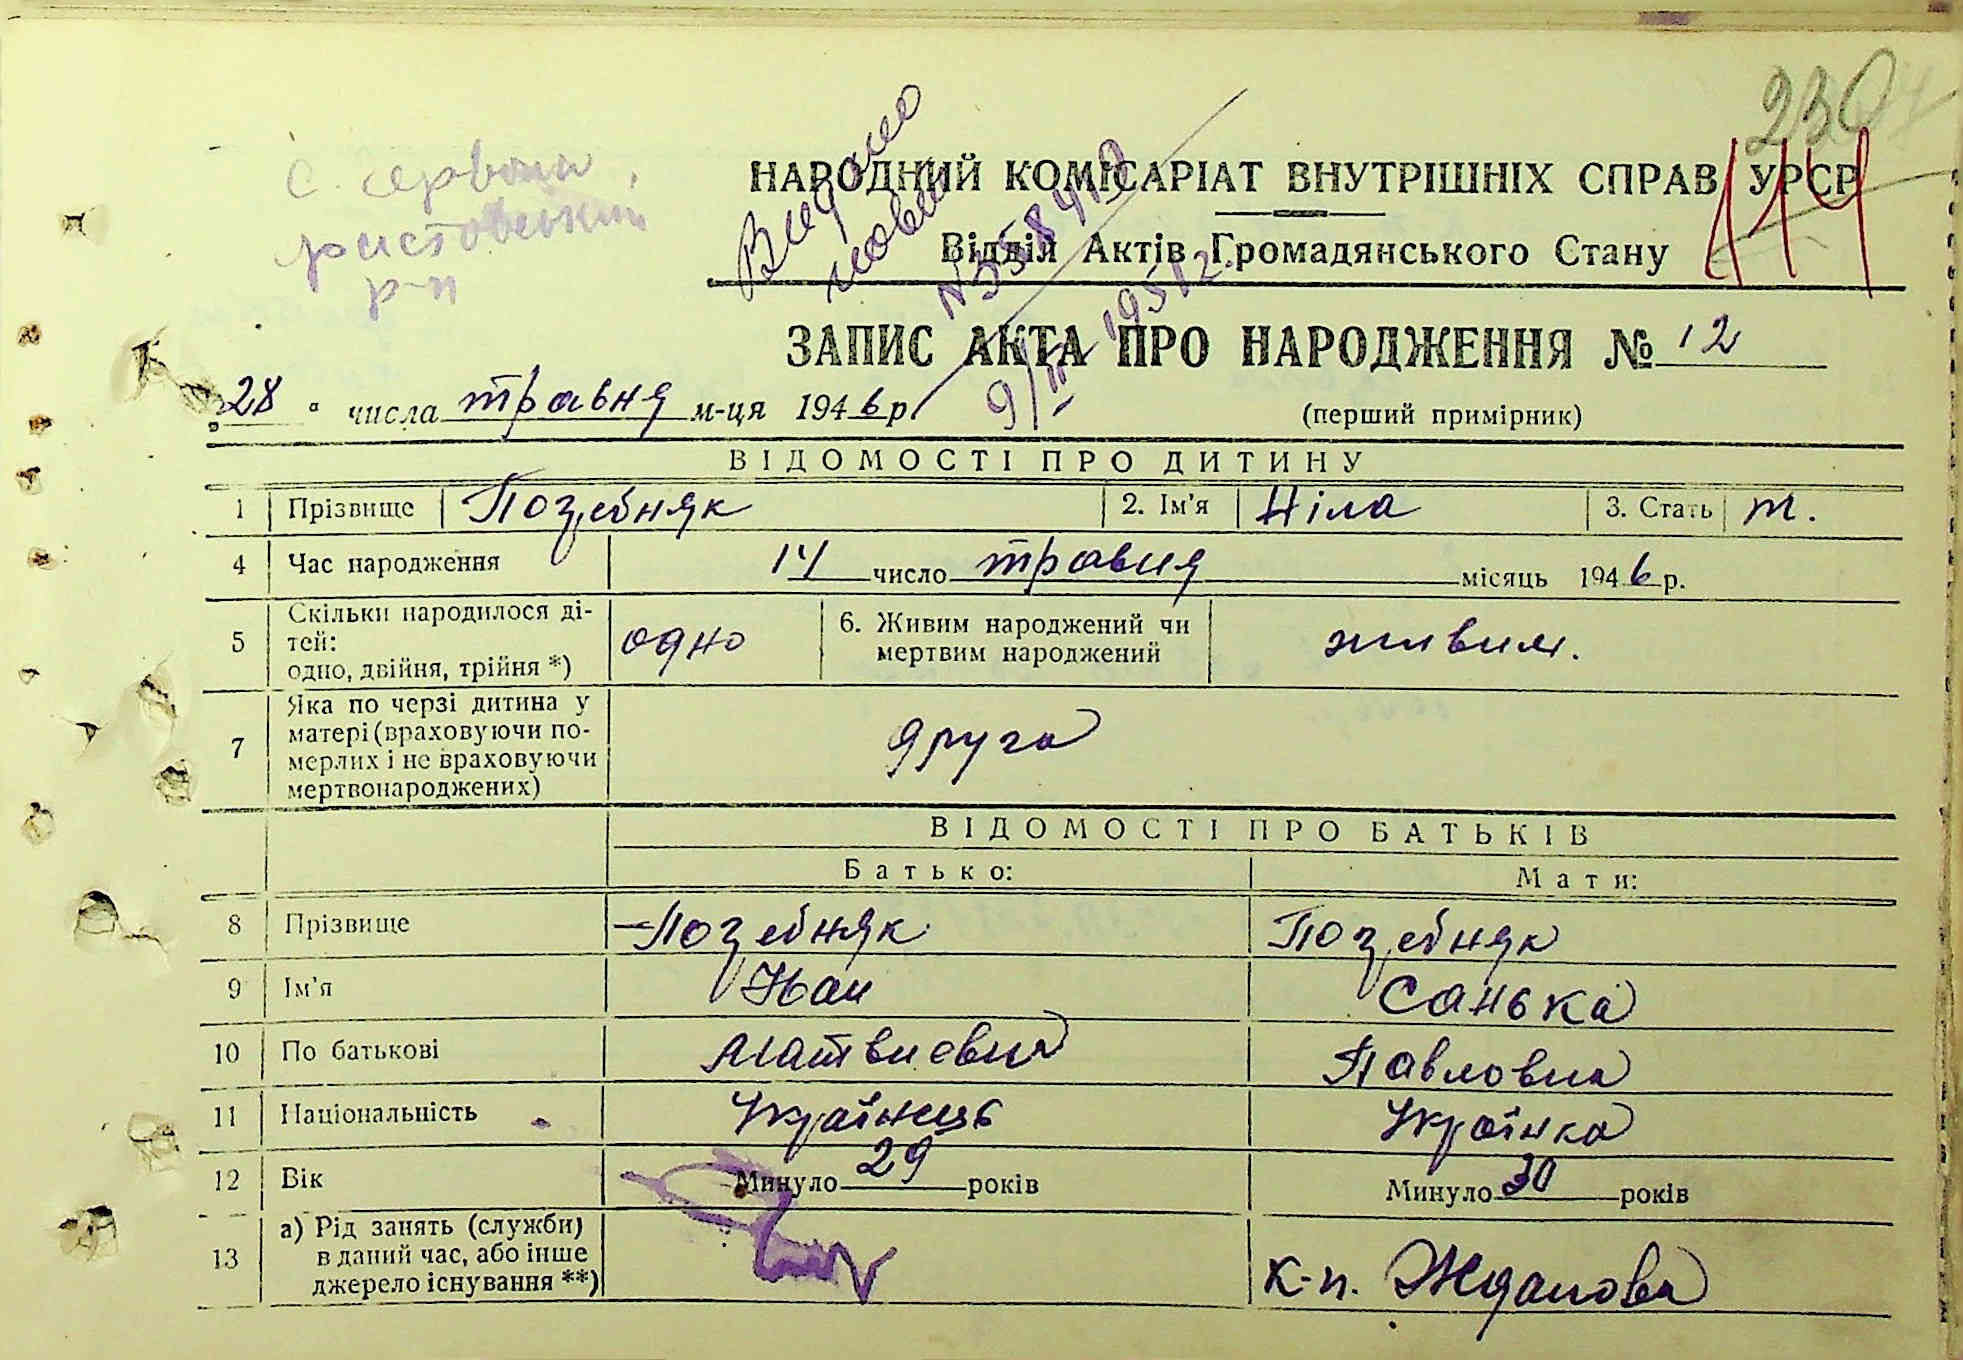 230
114
с. червона
ристовський
р-н
Видано
нове
N 358419
9/III 1951 2.
НАРОДНИЙ КОМІСАРІАТ ВНУТРІШНІХ СПРАВ УРСР
Відділ Актів Громадянського Стану
ЗАПИС АКТА ПРО НАРОДЖЕННЯ № 12
„28" числа травня м-ця 1946 р.
(перший примірник)
ВІДОМОСТІ ПРО ДИТИНУ
1 Прізвище Позебняк 2. Ім'я Ніла 3. Стать ж.
4 Час народження 14 число травня місяць 1946 р.
5 Скільки народилося ді-
тей:
одно, двійня, трійня *) одно 6. Живим народжений чи
мертвим народжений живим.
7 Яка по черзі дитина у
матері (враховуючи по-
мерлих і не враховуючи
мертвонароджених) друга
ВІДОМОСТІ ПРО БАТЬКІВ
Батько: Мати:
8 Прізвище Позебняк Позебняк
9 Ім'я Іван Санька
10 По батькові Матвиєвич Павловна
11 Національність Українець Українка
12 Вік Минуло 29 років Минуло 30 років
13 а) Рід занять (служби)
в даний час, або інше
джерело існування **) к-п. Жданова